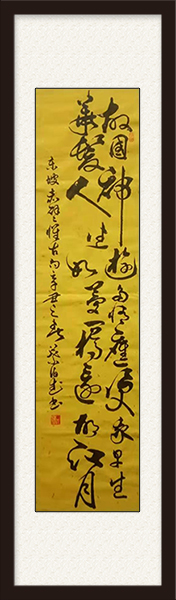 故國神遊多情應笑我早生
華髮人生如夢一樽還酹江月
東坡赤壁懷古句辛丑之春蔡書